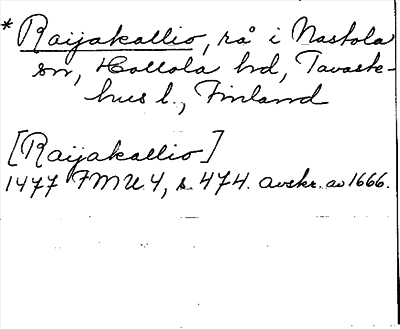 * Raijakallio, rå i Nastola
sn, Hollola hd, Tavaste-
hus l., Finland
[Raijakallio]
1477 FMU 4, s. 474. avskr. av 1666.